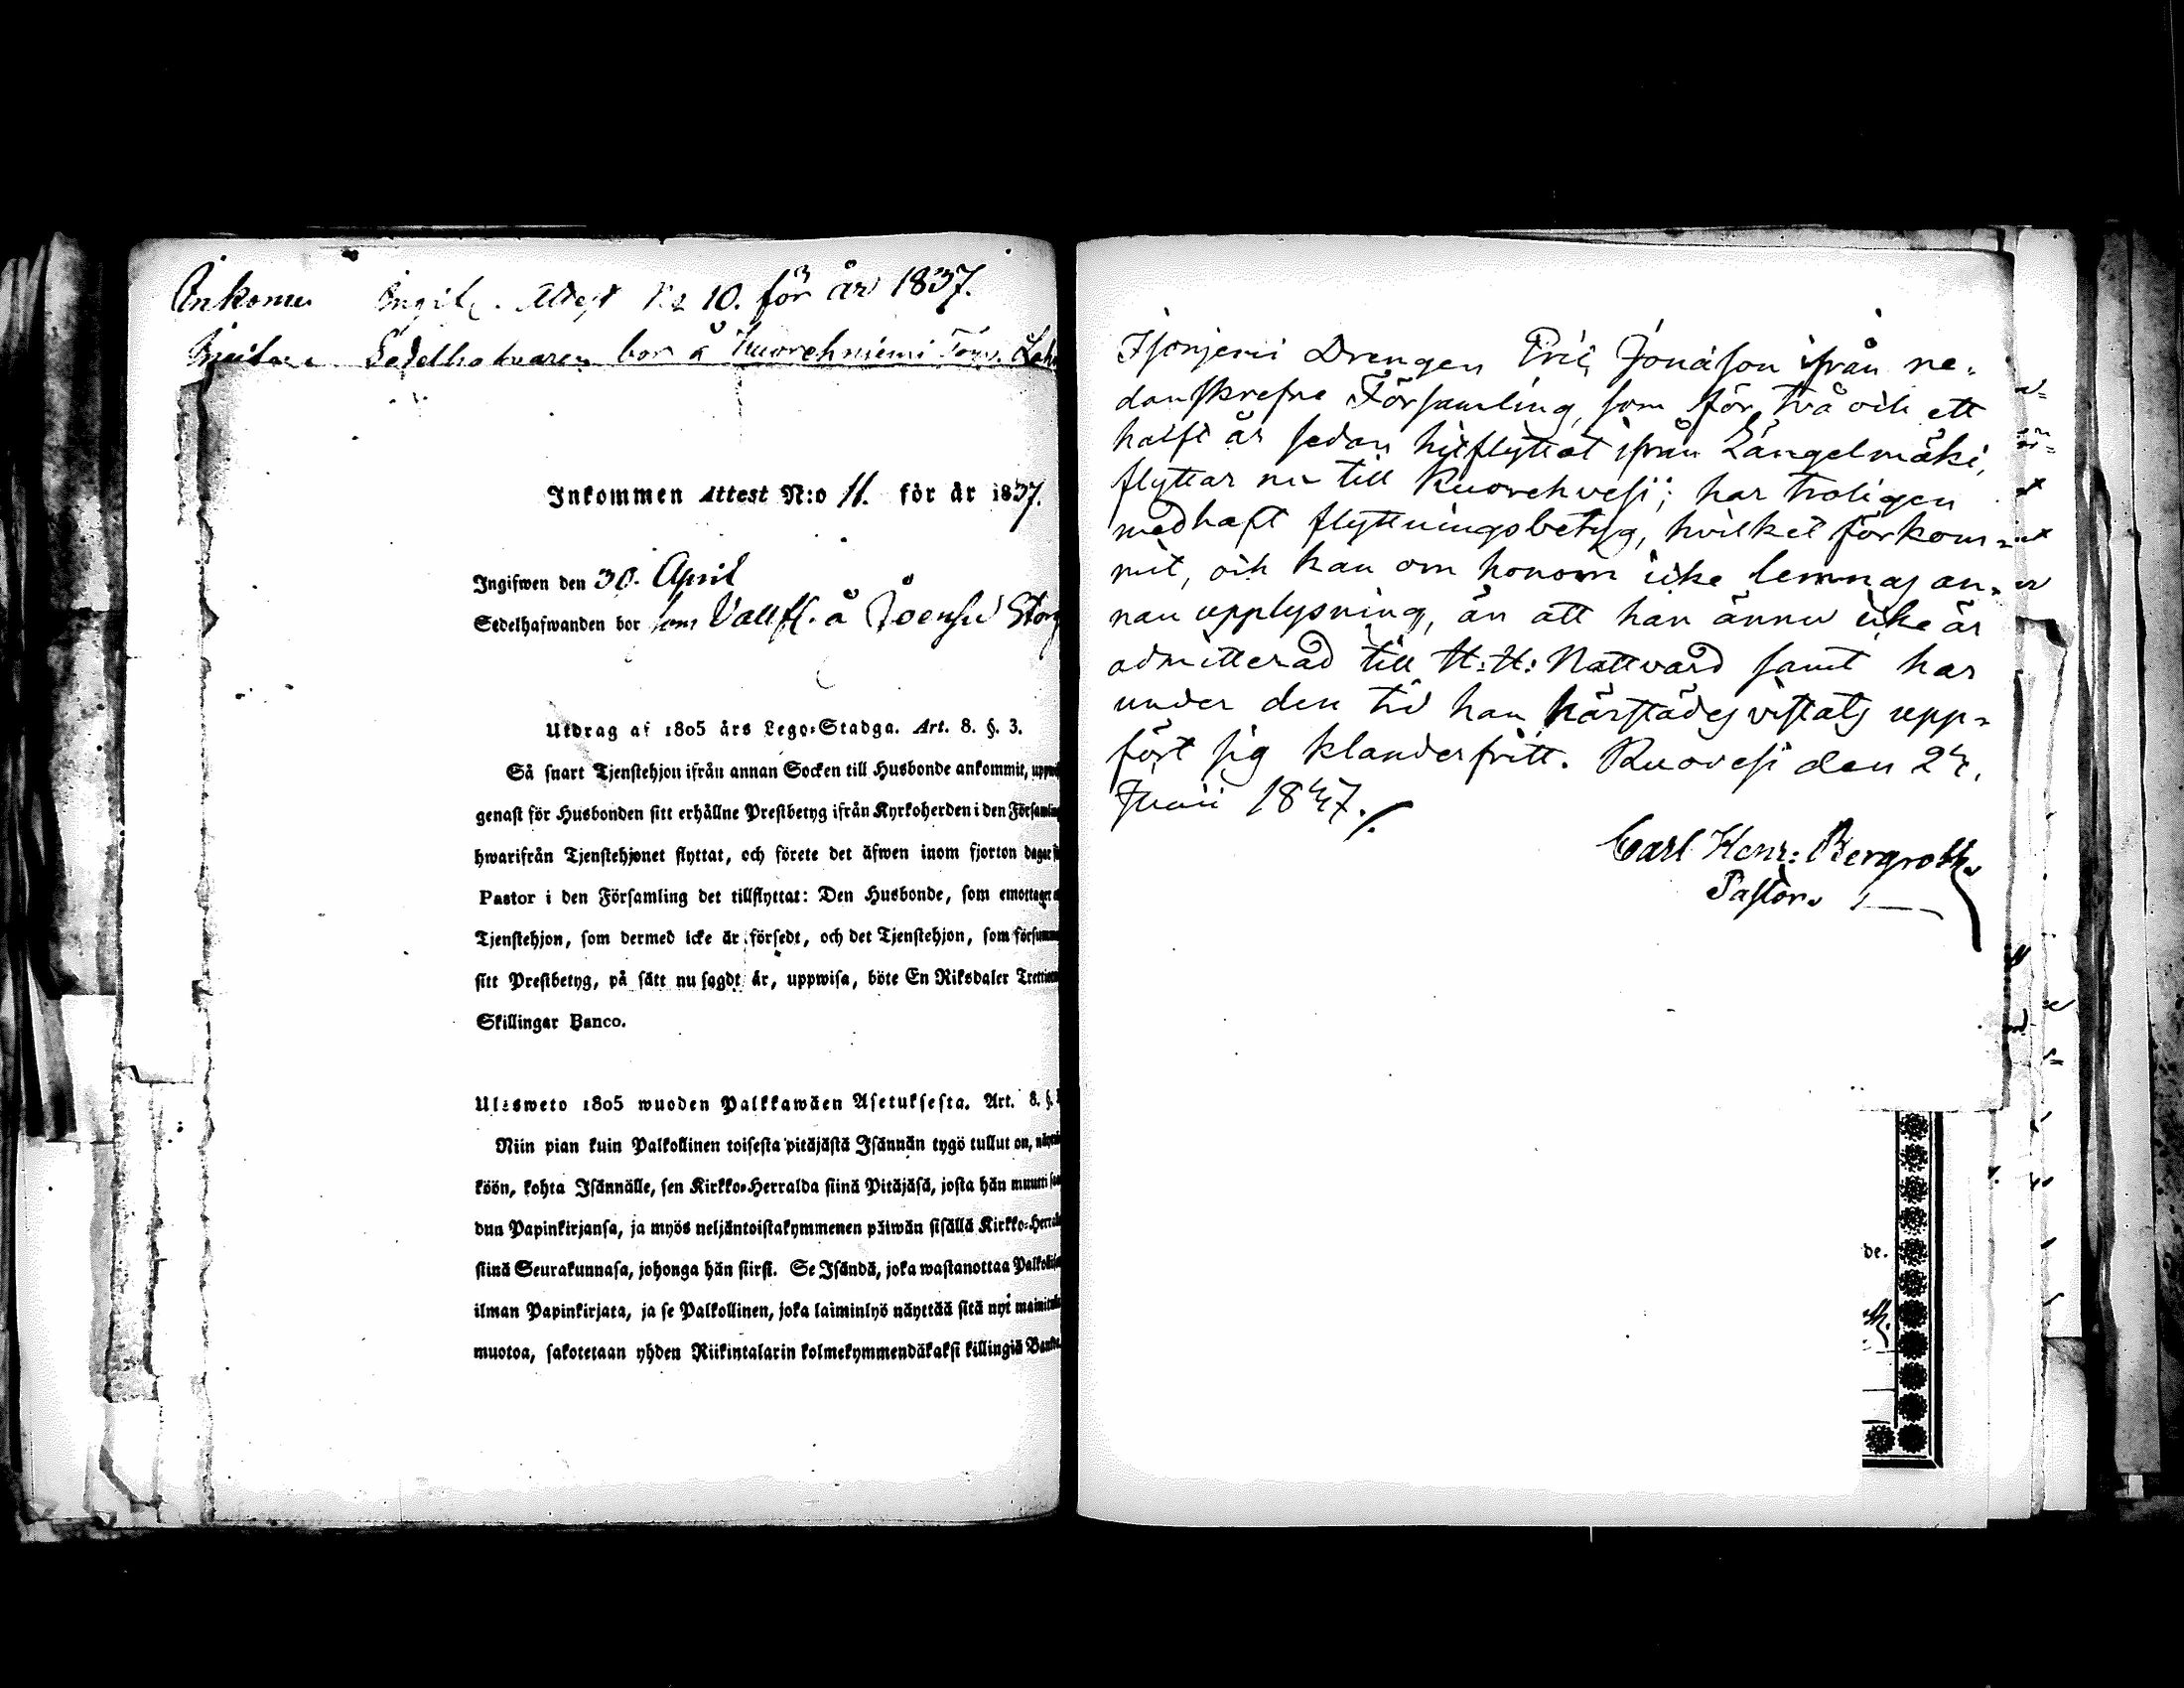 Inkommen Ingifv. Attest No 10. för år 1837.
Sedelhafvaren bor å Kuorehniemi Torp.
Inkommen Attest N:o 11. för år 1837.
Ingifwen den 30. April
Sedelhafwanden bor som Vallfl. å Joensu
Utdrag af 1805 års Lego-Stadga. Art. 8. §. 3.
Så snart Tjenstehjon ifrån annan Socken till Husbonde ankommit,
genast för Husbonden sitt erhållne Prestbetyg ifrån Kyrkoherden i den
hwarifrån Tjenstehjonet flyttat, och förete det äfwen inom fjorton dagar
Pastor i den Församling det tillflyttat: Den Husbonde, som emottager
Tjenstehjon, som dermed icke är försedt, och det Tjenstehjon, som
sitt Prestbetyg, på sätt nu sagdt är, uppwisa, böte En Riksdaler
Skillingar Banco.
Ulosweto 1805 wuoden Palkkawäen Asetuksesta. Art. 8. §.
Niin pian kuin Palkollinen toisesta pitäjästä Isännän tygö tullut on,
köön, kohta Isännälle, sen Kirkko-Herralda siinä Pitäjäsä, josta hän muutti
dun Papinkirjansa, ja myös neljäntoistakymmenen päiwän sisällä
siinä Seurakunnasa, johonga hän siirsi. Se Isändä, joka wastanottaa
ilman Papinkirjata, ja se Palkollinen, joka laiminlyö näyttää sitä nyt
muotoa, sakotetaan yhden Riikintalarin kolmekymmendäkaksi killingiä
Drengen Eric Jonasson ifrån ne-
danskrefne Församling, som för två och ett
halft år sedan hitflyttat ifrån Längelmäki,
flyttar nu till Kuorehvesi; har troligen
medhaft flyttningsbetyg, hvilket förkom-
mit, och kan om honom icke lemnas an-
nan upplysning, än att han ännu icke är
admitterad till H:H: Nattvard samt har
under den tid han härstädes vistats upp-
fört sig klanderfritt. Ruovesi den 24.
Junii 1847./.
Carl Henr: Bergroth.
Pastor.
de.